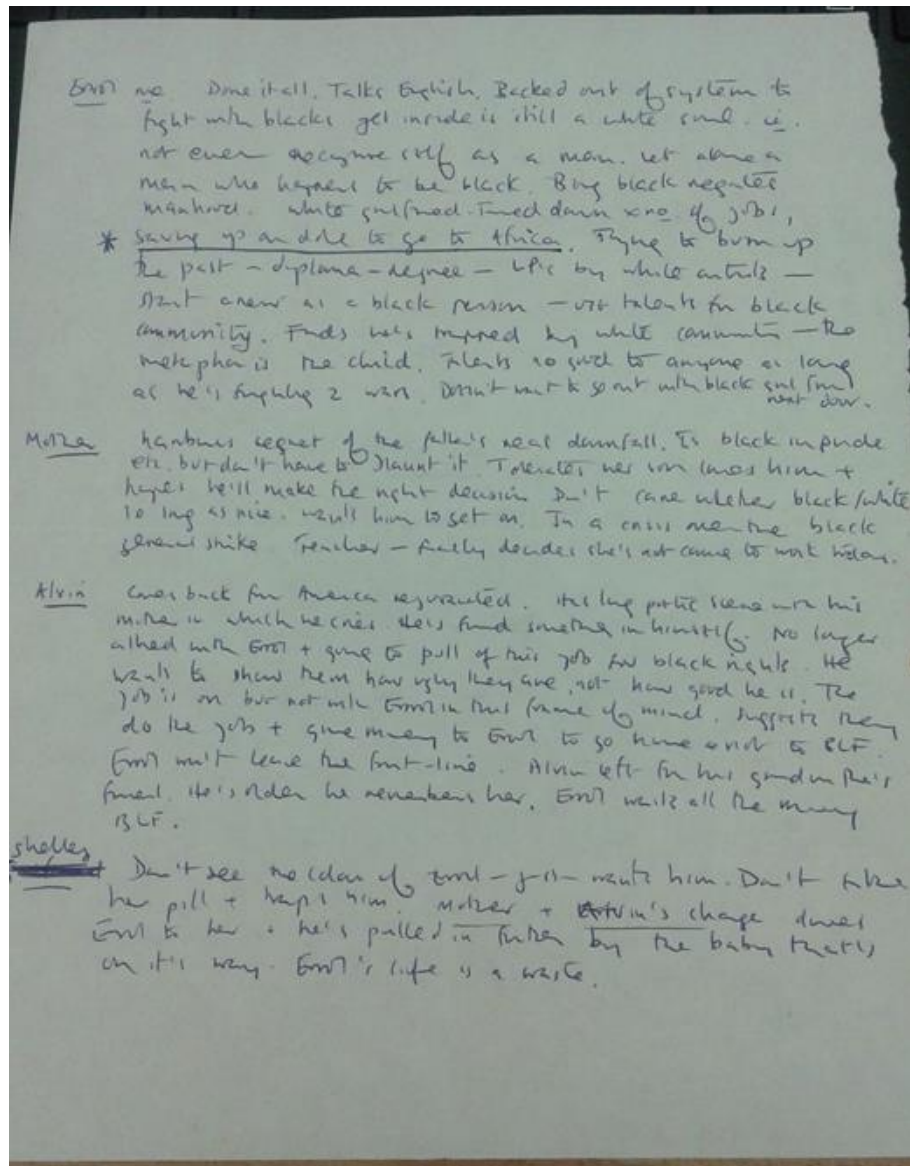 Errol me. Done it all. Talks English. Backed out of system to
fight with blacks yet inside is still a white soul. ie.
not even recognise self as a man. let alone a
man who happens to be black. Being black negates
manhood. White girlfriend. Turned down x no of jobs,
* Saving up on dole to go to Africa. Trying to burn up
the past - diploma - degree - LPs by white artists -
start anew as a black person - use talents for black
community. Finds he's trapped by white community - the
metaphor is the child. Talents no good to anyone as long
as he's fighting 2 wars. Doesn't want to go out with black girl from
next door.
Mother harbours secret of the father's real downfall. Is black in pride
etc. but don't have to flaunt it. Tolerates her son loves him +
hopes he'll make the right decision Don't care whether black/white
so long as nice. wants him to get on. In a crisis over the black
general strike. Teacher - finally decides she's not come to work today.
Alvin comes back from America rejuvenated. Has long poetic scene with his
mother in which he cries. He's found something in himself. No longer
allied with Errol + going to pull of this job for black rights. He
wants to show them how ugly they are, not how good he is. The
job is on but not with Errol in this frame of mind. suggests they
do the job + give money to Errol to go home + not to BLF.
Errol won't leave the front-line. Alvin left for his grandmother's
funeral. He's older he remembers her. Errol wants all the money
BLF.
Shelley Don't see no colour of Errol - just wants him. Don't take
her pill + traps him. Mother + Alvin's change drives
Errol to her + he's pulled in further by the baby that's
on it's way. Errol's life is a waste.